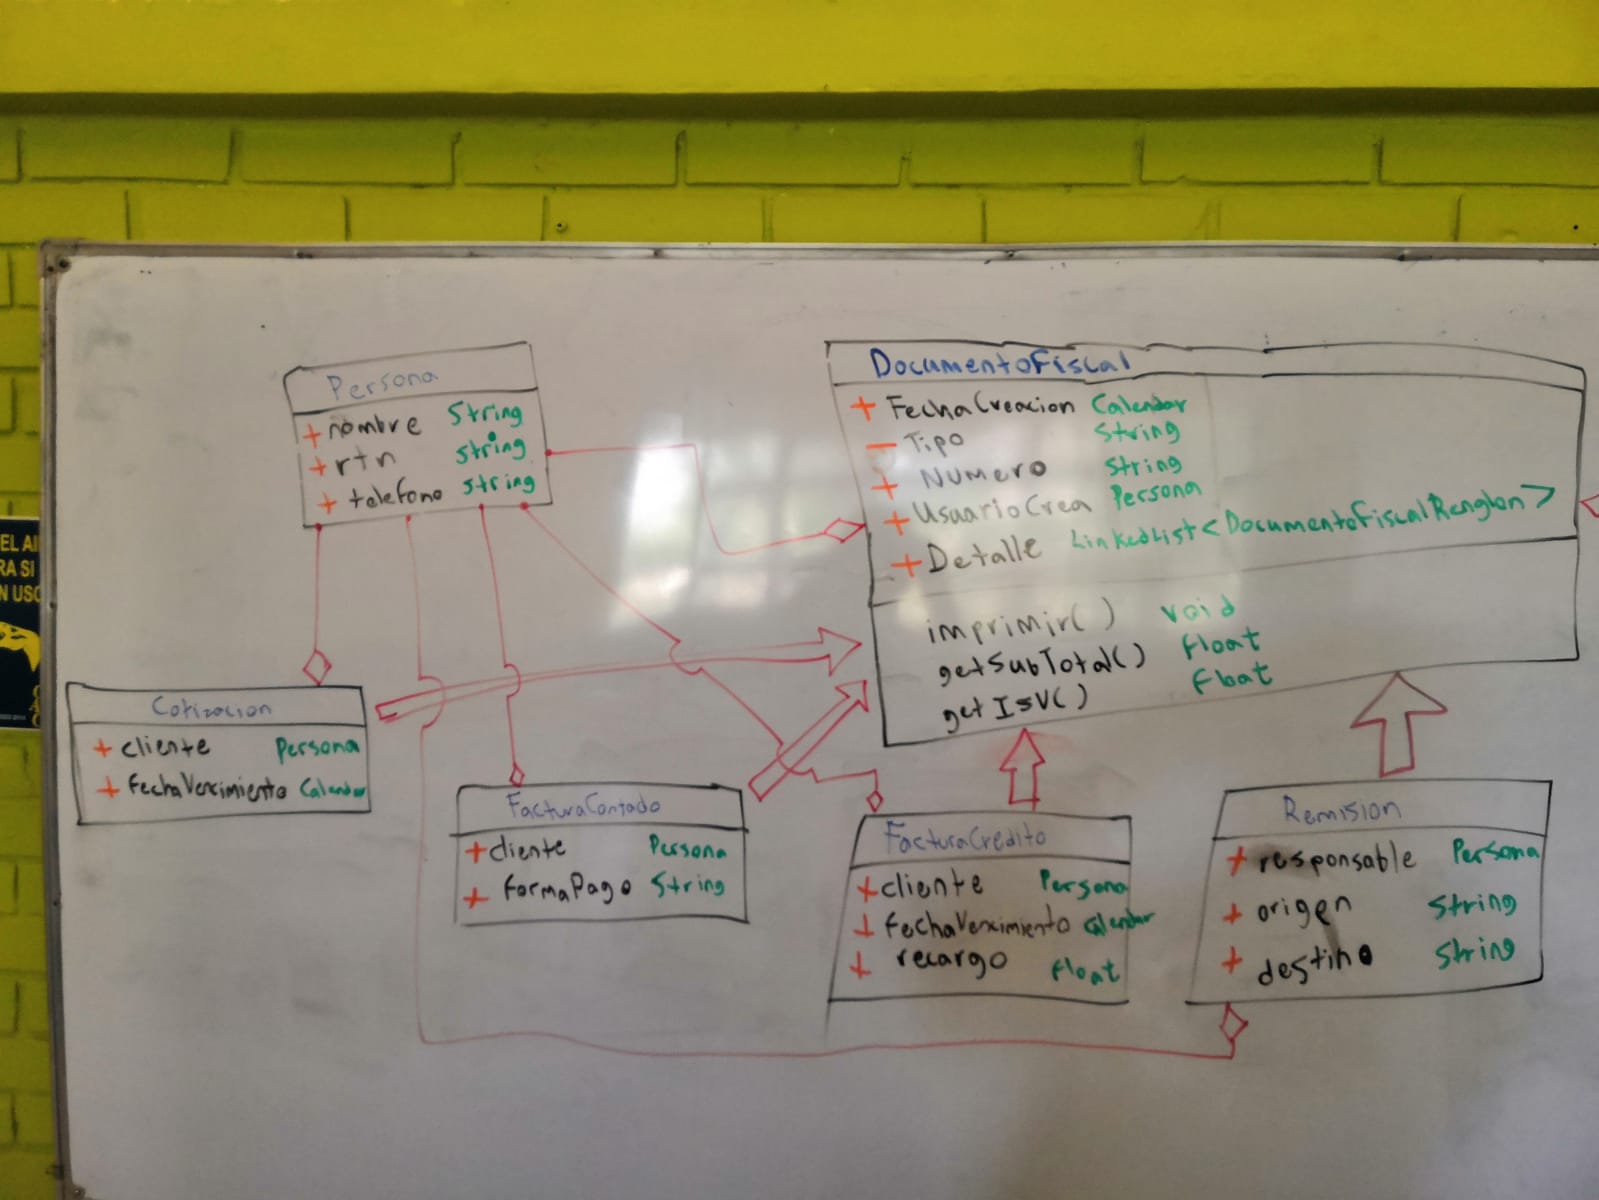 Persona
+ nombre String
+ rtn String
+ telefono String
DocumentoFiscal
+ FechaCreacion Calendar
- Tipo String
+ Numero String
+ UsuarioCrea Persona
+ Detalle LinkedList<DocumentoFiscalRenglon>
imprimir() void
getSubTotal() float
getISV() float
Cotizacion
+ cliente Persona
+ fechaVencimiento Calendar
FacturaContado
+ cliente Persona
+ formaPago String
FacturaCredito
+ cliente Persona
+ fechaVencimiento Calendar
+ recargo float
Remision
+ responsable Persona
+ origen String
+ destino String
EL
RA SI
N USO